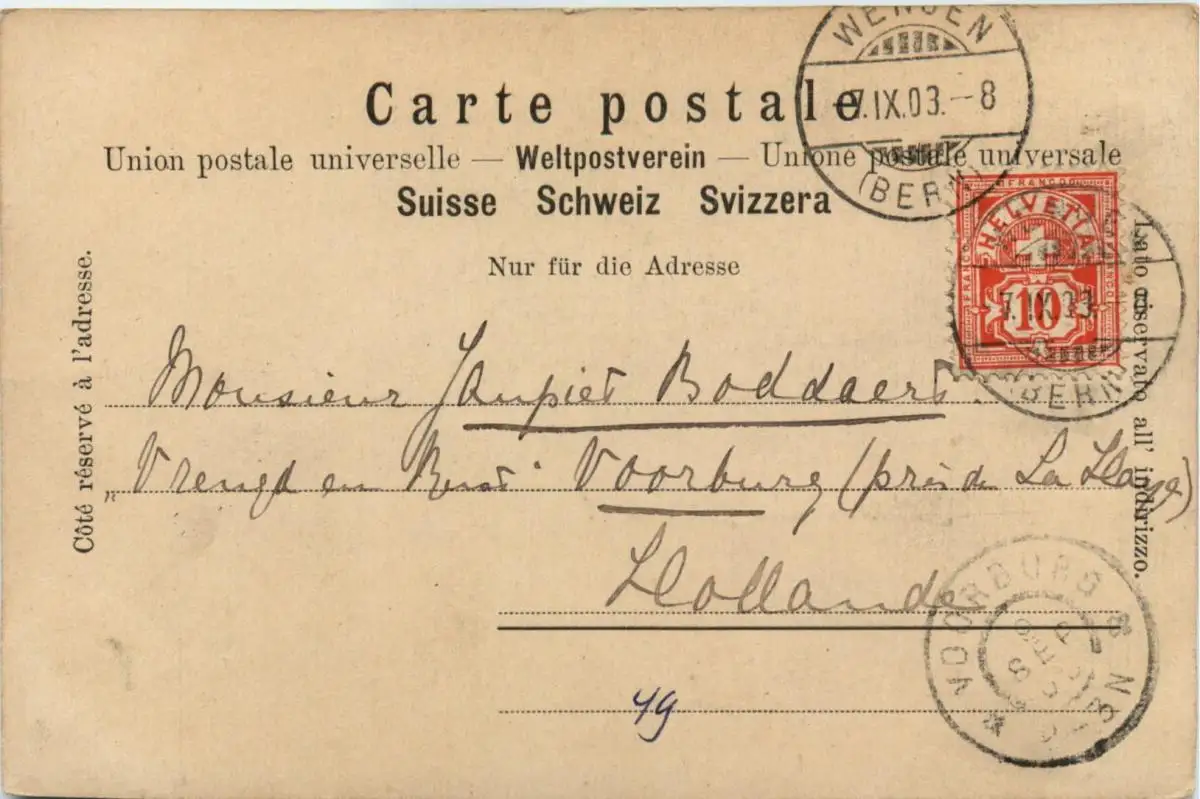 Carte postale
Union postale universelle — Weltpostverein — Unione postale universale
Suisse Schweiz Svizzera
Nur für die Adresse
Côté réservé à l'adresse.
Lato riservato all' indirizzo.
WENGEN
7.IX.03.-8
(BERN)
FRANCO
HELVETIA
10
7.IX.03.-8
(BERN)
Monsieur Janpiet Boddaert.
Vreugd en Rust Voorburg (près de La Haye)
Hollande
VOORBURG
8-9N
49